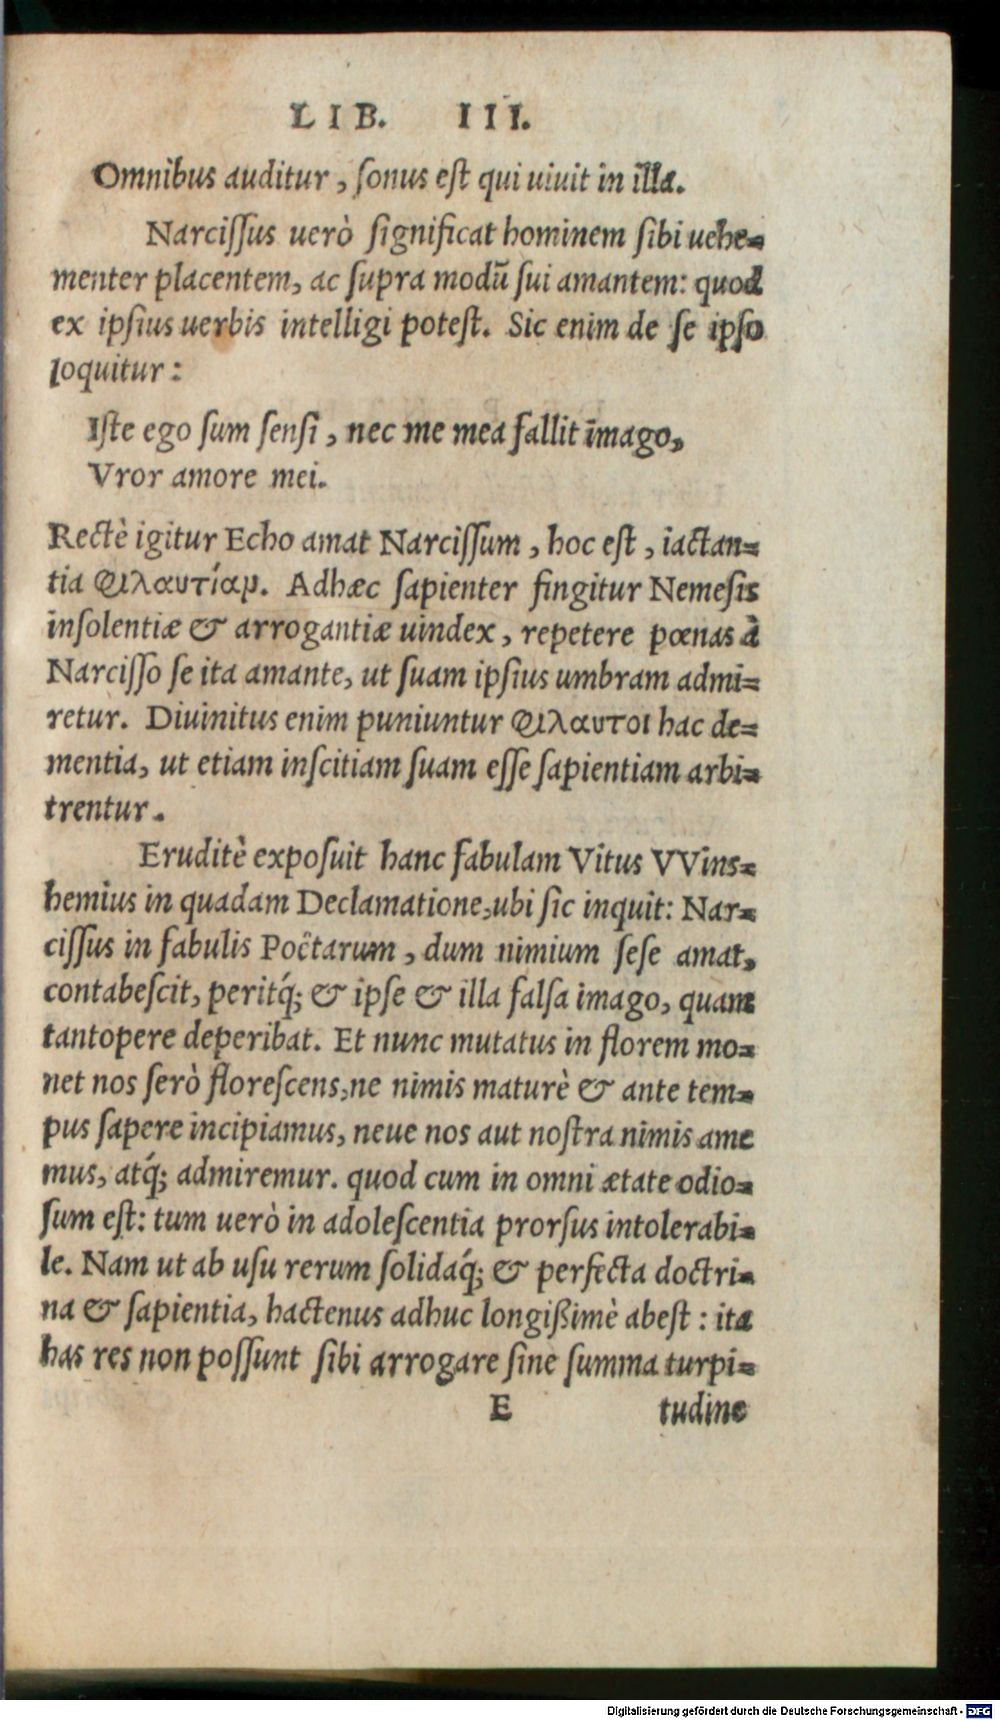 LIB. III.
Omnibus auditur, ſonus eſt qui uiuit in illa.
Narciſſus uerò ſignificat hominem ſibi uehe=
menter placentem, ac ſupra modũ ſui amantem: quod
ex ipſius uerbis intelligi poteſt. Sic enim de ſe ipſo
loquitur:
Iſte ego ſum ſenſi, nec me mea fallit imago,
Vror amore mei.
Rectè igitur Echo amat Narciſſum, hoc eſt, iactan=
tia φιλαυτίαμ. Adhæc ſapienter fingitur Nemeſis
inſolentiæ & arrogantiæ uindex, repetere pœnas à
Narciſſo ſe ita amante, ut ſuam ipſius umbram admi=
retur. Diuinitus enim puniuntur φιλαυτοι hac de=
mentia, ut etiam inſcitiam ſuam eſſe ſapientiam arbi=
trentur.
Eruditè expoſuit hanc fabulam Vitus VVins=
hemius in quadam Declamatione, ubi ſic inquit: Nar=
ciſſus in fabulis Poëtarum, dum nimium ſeſe amat,
contabeſcit, peritq́; & ipſe & illa falſa imago, quam
tantopere deperibat. Et nunc mutatus in florem mo=
net nos ſerò floreſcens, ne nimis maturè & ante tem=
pus ſapere incipiamus, neue nos aut noſtra nimis ame
mus, atq́; admiremur. quod cum in omni ætate odio=
ſum eſt: tum uerò in adoleſcentia prorſus intolerabi=
le. Nam ut ab uſu rerum ſolidaq́; & perfecta doctri=
na & ſapientia, hactenus adhuc longißimè abeſt: ita
has res non poſſunt ſibi arrogare ſine ſumma turpi=
E tudine
Digitalisierung gefördert durch die Deutsche Forschungsgemeinschaft - DFG